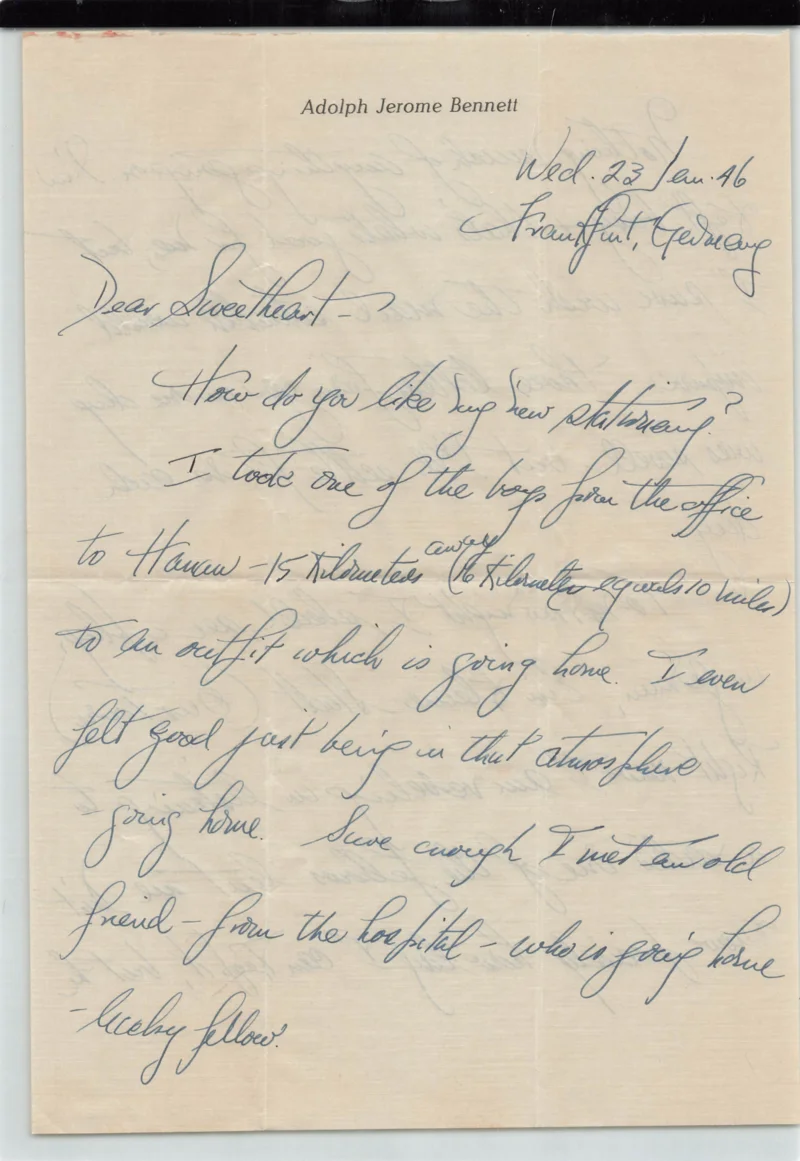 Adolph Jerome Bennett
Wed. 23 Jan. 46
Frankfurt, Germany
Dear Sweetheart -
How do you like my new stationery?
I took one of the boys from the office
to Hanau - 15 Kilometers away (16 Kilometers equals 10 miles)
to an outfit which is going home. I even
felt good just being in that atmosphere
- going home. Sure enough I met an old
friend - from the hospital - who is going home
- lucky fellow.